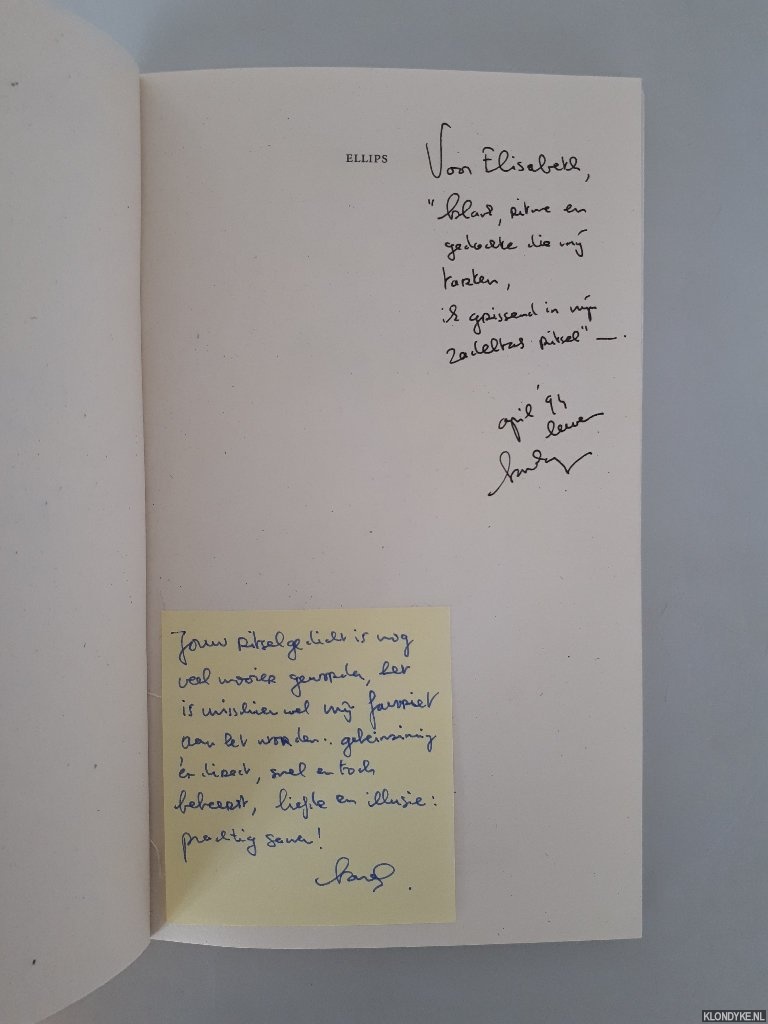 ELLIPS
Voor Elisabeth,
"klank, ritme en
gedachte die mij
tarten,
ik grissend in mijn
zadeltas ritsel" —.
april '94
Leuven
Jouw ritselgedicht is nog
veel mooier geworden, het
is misschien wel mijn favoriet
aan het worden: geheimzinnig
én direct, snel en toch
beheerst, liefde en illusie:
prachtig samen!
KLONDYKE.NL